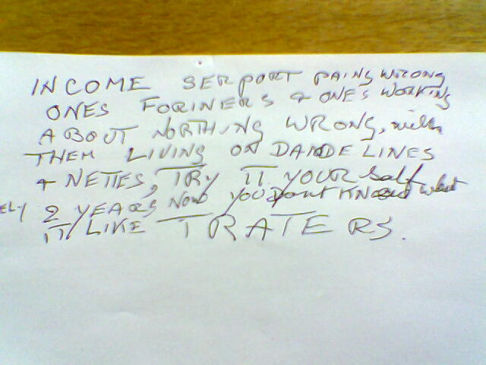 INCOME SERPORT PAINS WRONG
ONES FORINERS + ONES WORKING
ABOUT NORTHING WRONG, with
THEM LIVING ON DANDE LINES
+ NETTES, TRY IT YOUR self
ELY 2 YEARS NOW YOU DONT KNOW what
IT LIKE TRATERS.